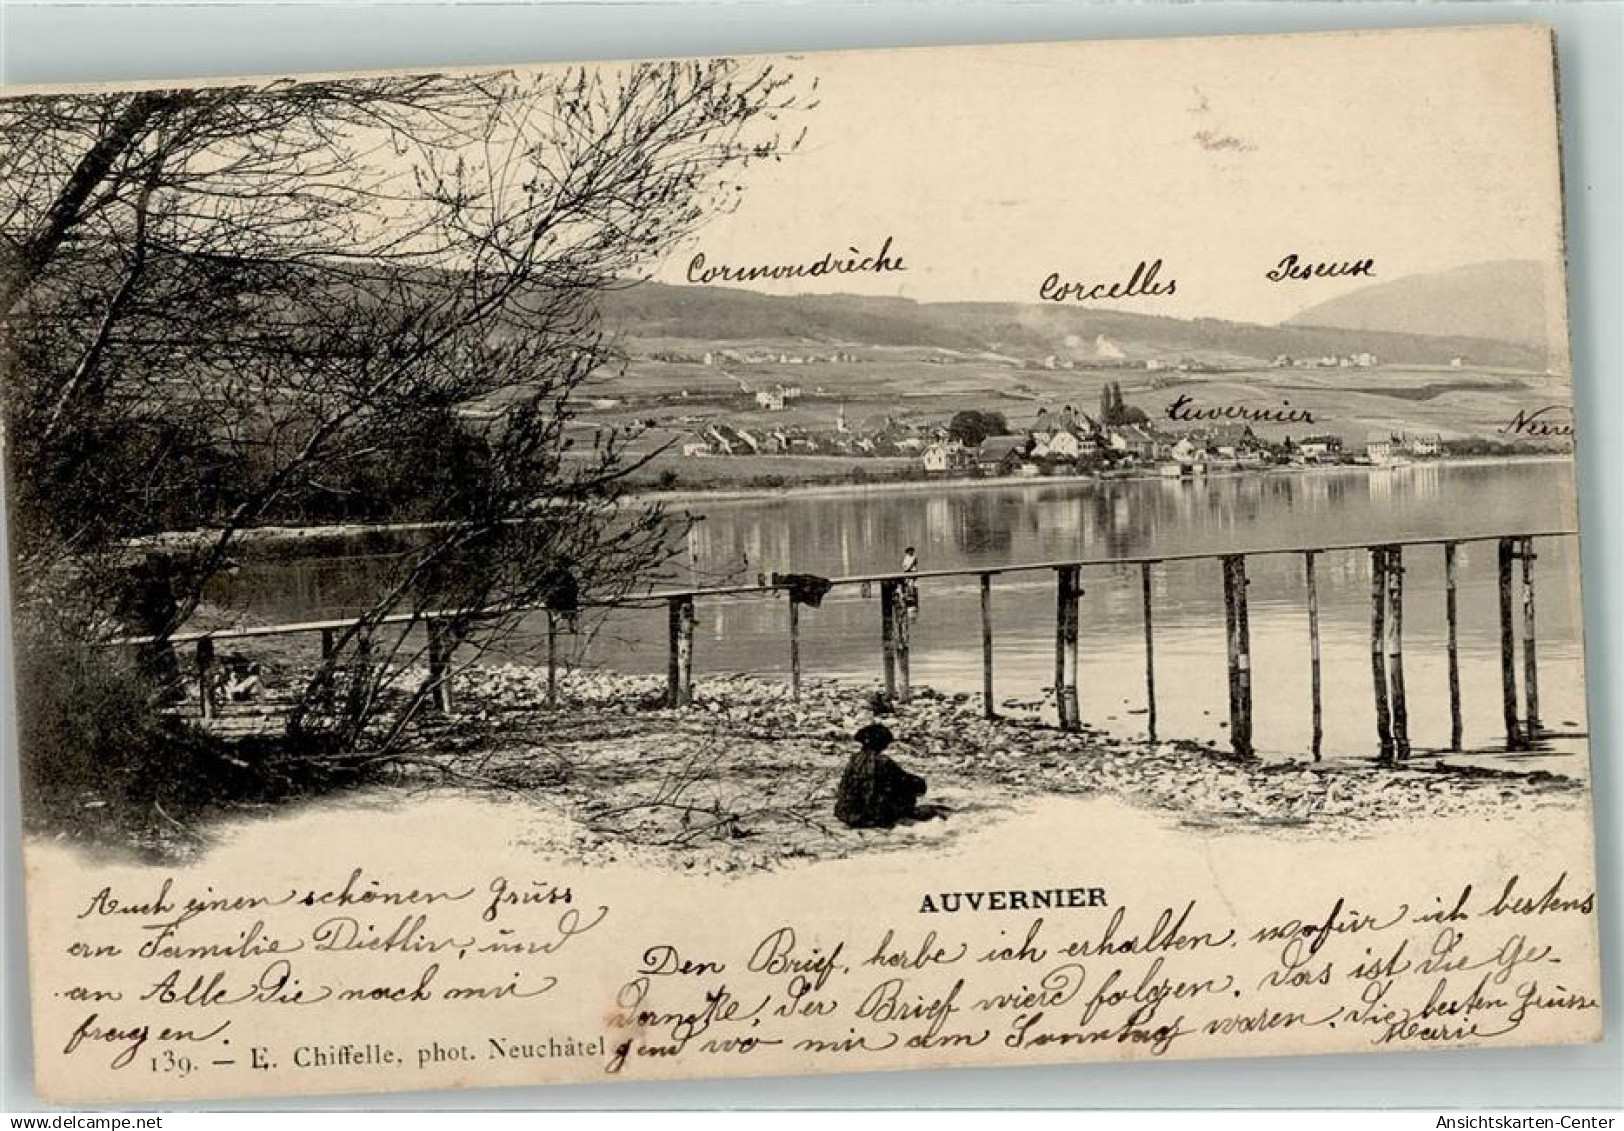 Cormondrèche
Corcelles
Peseuse
Auvernier
AUVERNIER
Auch einen schönen Grüss
an Familie Dietliv, und
an Alle Die nach mir
fragen.
Den Brief, habe ich erhalten, wofür ich bestens
Danke, Der Brief wierd folgen. Das ist die Ge-
gend wo mir am Sonntag waren. Die besten Grüsse
Marie
139. — E. Chiffelle, phot. Neuchâtel
AnsichtsKarten-Center
www.delcampe.net